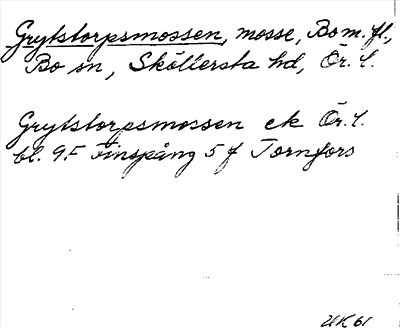 Grytstorpsmossen, mosse, Bo m. fl.,
Bo sn, Sköllersta hd, Ör. l.
Grytstorpsmossen ek Ör. l.
bl. 9F Finspång 5 f Tornfors
UK 61